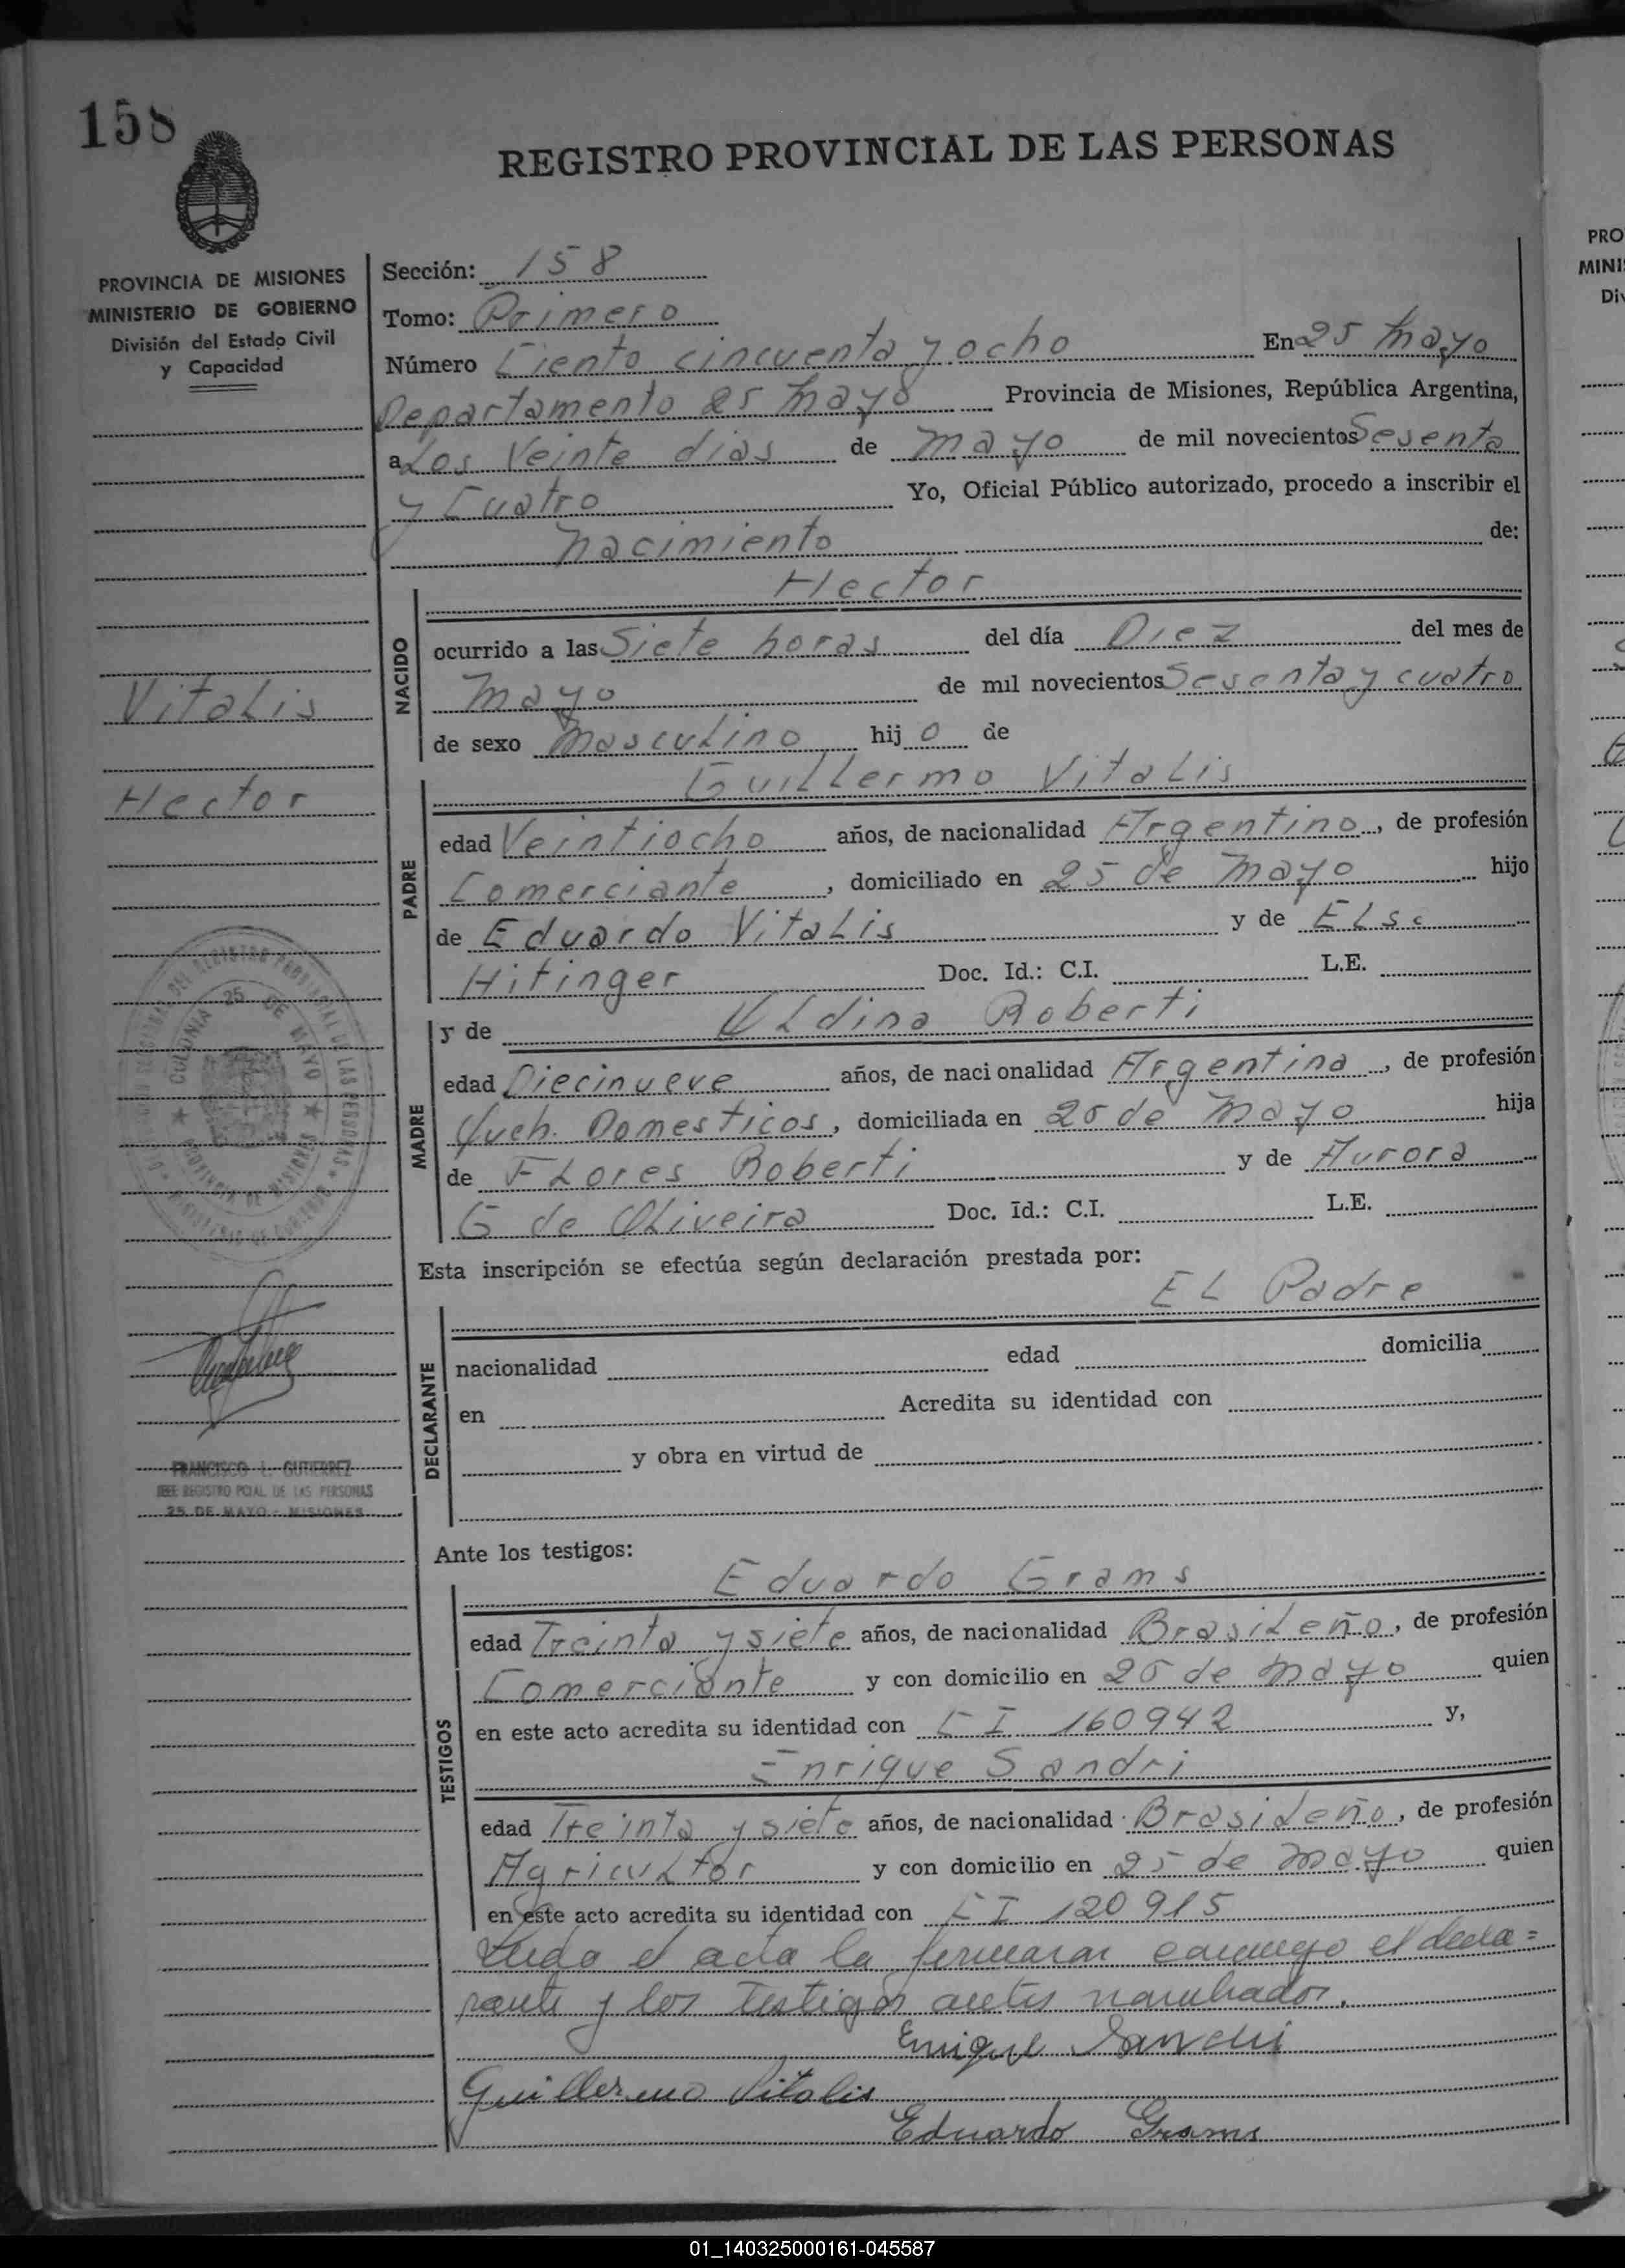 158
REGISTRO PROVINCIAL DE LAS PERSONAS
PROVINCIA DE MISIONES
MINISTERIO DE GOBIERNO
División del Estado Civil
y Capacidad
Vitalis
Hector
COLONIA 25 DE MAYO
PROVINCIA DE MISIONES
FRANCISCO L. GUTIERREZ
JEFE REGISTRO PCIAL DE LAS PERSONAS
25 DE MAYO - MISIONES
Sección: 158
Tomo: Primero
Número Ciento cincuenta y ocho En 25 mayo
Departamento 25 mayo Provincia de Misiones, República Argentina,
a Los Veinte dias de mayo de mil novecientos Sesenta
y Cuatro Yo, Oficial Público autorizado, procedo a inscribir el
nacimiento de:
Hector
NACIDO
ocurrido a las Siete horas del día Diez del mes de
mayo de mil novecientos Sesenta y cuatro
de sexo masculino hij o de
Guillermo Vitalis
PADRE
edad Veintiocho años, de nacionalidad Argentino, de profesión
Comerciante, domiciliado en 25 de mayo hijo
de Eduardo Vitalis y de ELsa
Hitinger Doc. Id.: C.I. L.E.
y de Uldina Roberti
MADRE
edad Diecinueve años, de nacionalidad Argentina, de profesión
Queh. Domesticos, domiciliada en 25 de mayo hija
de FLores Roberti y de Aurora
G de Oliveira Doc. Id.: C.I. L.E.
Esta inscripción se efectúa según declaración prestada por:
EL Padre
DECLARANTE
nacionalidad edad domicilia
en Acredita su identidad con
y obra en virtud de
Ante los testigos:
Eduardo Grams
TESTIGOS
edad Treinta y siete años, de nacionalidad BrasiLeño, de profesión
Comerciante y con domicilio en 25 de mayo quien
en este acto acredita su identidad con C I 160942 y,
Enrique Sandri
edad Treinta y siete años, de nacionalidad BrasiLeño, de profesión
Agricultor y con domicilio en 25 de mayo quien
en este acto acredita su identidad con C I 120915
Leida el acta la firmaran conmigo el decla=
rante y los testigos antes nombrados.
Enrique Sandri
Guillermo Vitalis
Eduardo Grams
PRO
MINI
Div
01_140325000161-045587